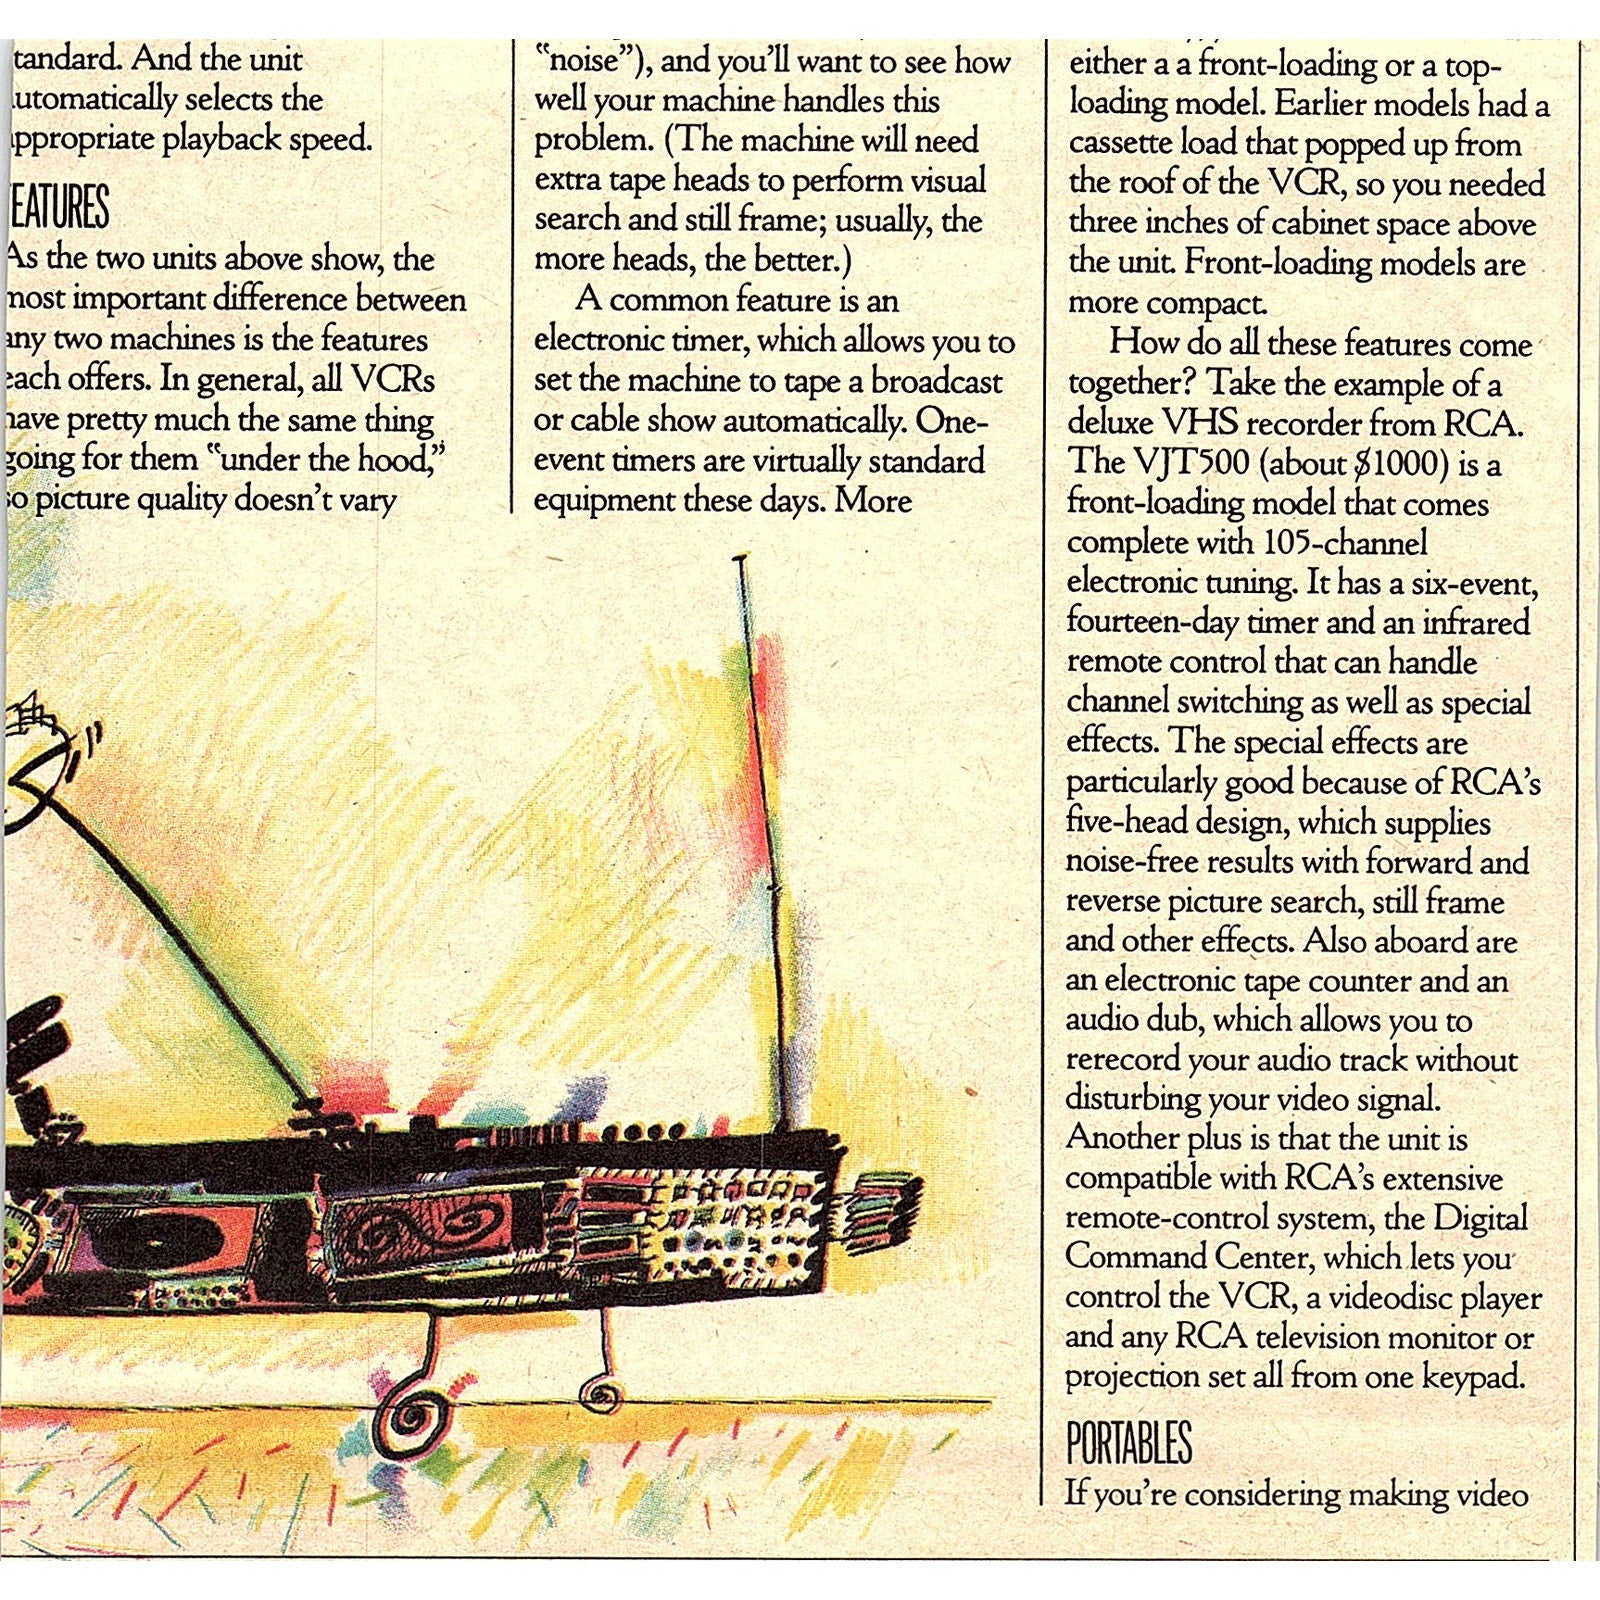 tandard. And the unit
utomatically selects the
ppropriate playback speed.
EATURES
As the two units above show, the
most important difference between
any two machines is the features
each offers. In general, all VCRs
have pretty much the same thing
going for them “under the hood,”
so picture quality doesn’t vary
“noise”), and you’ll want to see how
well your machine handles this
problem. (The machine will need
extra tape heads to perform visual
search and still frame; usually, the
more heads, the better.)
A common feature is an
electronic timer, which allows you to
set the machine to tape a broadcast
or cable show automatically. One-
event timers are virtually standard
equipment these days. More
either a a front-loading or a top-
loading model. Earlier models had a
cassette load that popped up from
the roof of the VCR, so you needed
three inches of cabinet space above
the unit. Front-loading models are
more compact.
How do all these features come
together? Take the example of a
deluxe VHS recorder from RCA.
The VJT500 (about $1000) is a
front-loading model that comes
complete with 105-channel
electronic tuning. It has a six-event,
fourteen-day timer and an infrared
remote control that can handle
channel switching as well as special
effects. The special effects are
particularly good because of RCA’s
five-head design, which supplies
noise-free results with forward and
reverse picture search, still frame
and other effects. Also aboard are
an electronic tape counter and an
audio dub, which allows you to
rerecord your audio track without
disturbing your video signal.
Another plus is that the unit is
compatible with RCA’s extensive
remote-control system, the Digital
Command Center, which lets you
control the VCR, a videodisc player
and any RCA television monitor or
projection set all from one keypad.
PORTABLES
If you’re considering making video